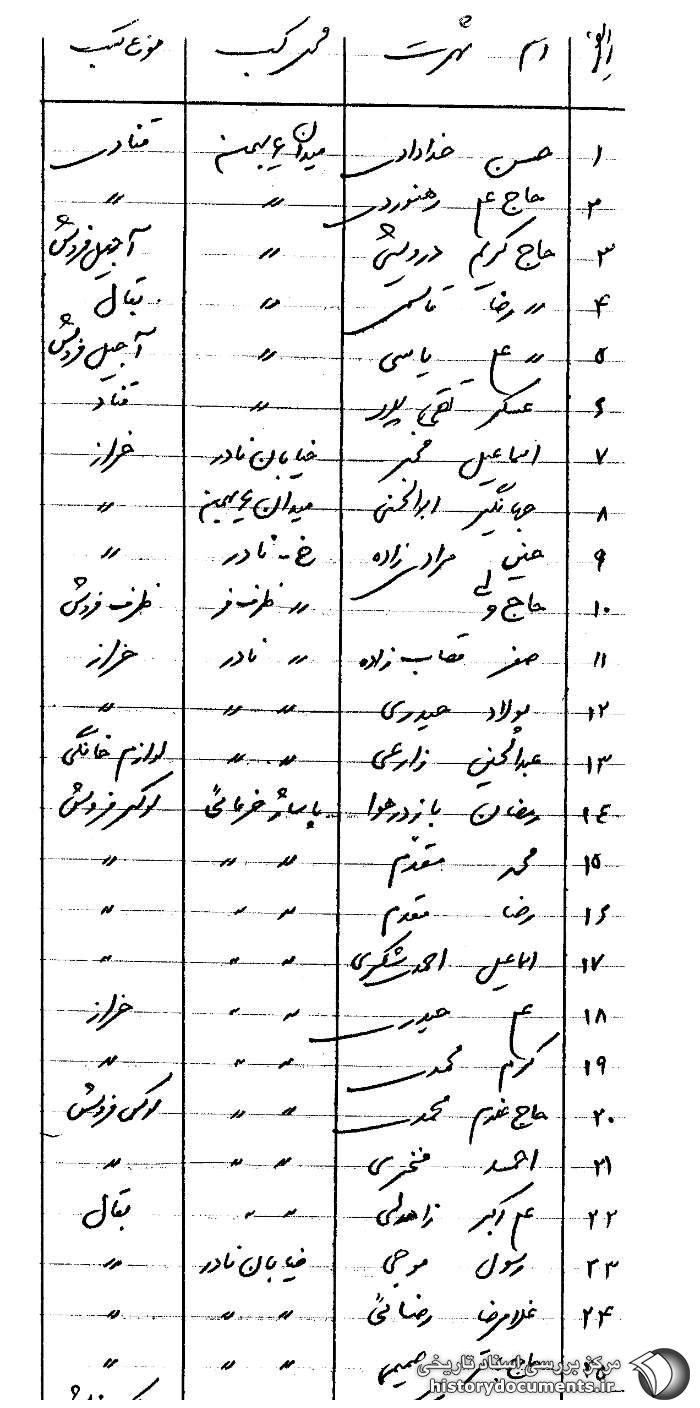 ردیف اسم شهرت محل کسب نوع کسب
۱ حسن خدادادی میدان ۶ بهمن قنادی
۲ حاج علی رهنوردی 〃 〃
۳ حاج کریم درویشی 〃 آجیل فروش
۴ 〃 رضا قاسمی 〃 بقال
۵ 〃 علی یاسی 〃 آجیل فروش
۶ عسکر تقی پور 〃 قناد
۷ اسماعیل خیابان نادر خراز
۸ جهانگیر ابوالحسنی میدان ۶ بهمن 〃
۹ حسین مرادی زاده خ - نادر 〃
۱۰ حاج ولی 〃 ظرف فر ظرف فروش
۱۱ صفر قصاب زاده 〃 نادر خراز
۱۲ پولاد حیدری 〃 〃 〃
۱۳ عبدالحسین زارعی 〃 〃 لوازم خانگی
۱۴ رمضان بازدرهوا پاساژ خرمائی لوکس فروش
۱۵ محمد مقدم 〃 〃 〃
۱۶ رضا مقدم 〃 〃 〃
۱۷ اسماعیل احمد شکری 〃 〃 〃
۱۸ علی حیدری 〃 〃 خراز
۱۹ کرم محمدی 〃 〃 〃
۲۰ حاج غلام محمدی 〃 〃 لوکس فروش
۲۱ احمد مفخری 〃 〃 〃
۲۲ علی اکبر زاهدلی 〃 〃 بقال
۲۳ رسول موجی خیابان نادر 〃
۲۴ غلامرضا رضائی 〃 〃 〃
۲۵ حاج صمیمی 〃 〃 〃
مرکز بررسی اسناد تاریخی
historydocuments.ir